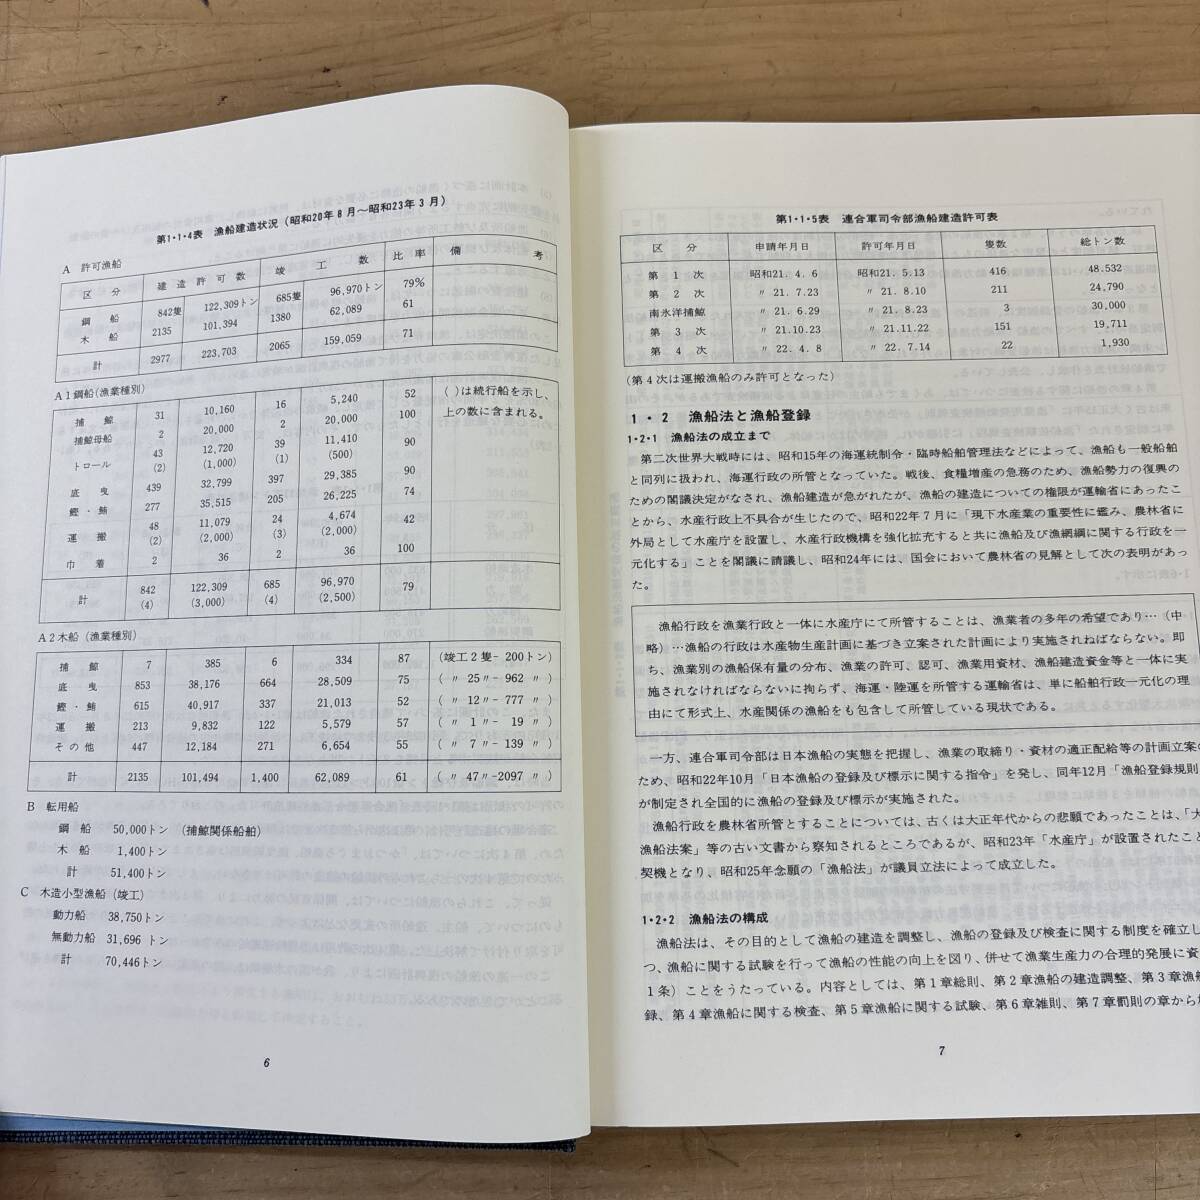 第1・1・4表　漁船建造状況（昭和20年8月～昭和23年3月）
A　許可漁船
区　分　建　造　許　可　数　竣　工　数　比　率　備　考
鋼　船　842隻　122,309トン　685隻　96,970トン　79%
木　船　2135　101,394　1380　62,089　61
計　2977　223,703　2065　159,059　71
A1鋼船（漁業種別）
捕　鯨　31　10,160　16　5,240　52　（ ）は続行船を示し、
捕鯨母船　2　20,000　2　20,000　100　上の数に含まれる。
トロール　43　12,720　39　11,410　90
(2)　(1,000)　(1)　(500)
底　曳　439　32,799　397　29,385　90
鰹・鮪　277　35,515　205　26,225　74
運　搬　48　11,079　24　4,674　42
(2)　(2,000)　(3)　(2,000)
巾　着　2　36　2　36　100
計　842　122,309　685　96,970　79
(4)　(3,000)　(4)　(2,500)
A2木船（漁業種別）
捕　鯨　7　385　6　334　87　（竣工2隻−200トン）
底　曳　853　38,176　664　28,509　75　（ 〃 25〃−962 〃 ）
鰹・鮪　615　40,917　337　21,013　52　（ 〃 12〃−777 〃 ）
運　搬　213　9,832　122　5,579　57　（ 〃 1〃− 19 〃 ）
その他　447　12,184　271　6,654　55　（ 〃 7〃−139 〃 ）
計　2135　101,494　1,400　62,089　61　（ 〃 47〃−2097 〃 ）
B　転用船
鋼　船　50,000トン　（捕鯨関係船舶）
木　船　1,400トン
計　51,400トン
C　木造小型漁船（竣工）
動力船　38,750トン
無動力船　31,696トン
計　70,446トン
6
第1・1・5表　連合軍司令部漁船建造許可表
区　分　申請年月日　許可年月日　隻数　総トン数
第　1　次　昭和21. 4. 6　昭和21. 5.13　416　48.532
第　2　次　〃 21. 7.23　〃 21. 8.10　211　24,790
南氷洋捕鯨　〃 21. 6.29　〃 21. 8.23　3　30,000
第　3　次　〃 21.10.23　〃 21.11.22　151　19,711
第　4　次　〃 22. 4. 8　〃 22. 7.14　22　1,930
（第4次は運搬漁船のみ許可となった）
1・2　漁船法と漁船登録
1・2・1　漁船法の成立まで
第二次世界大戦時には、昭和15年の海運統制令・臨時船舶管理法などによって、漁船も一般船舶
と同列に扱われ、海運行政の所管となっていた。戦後、食糧増産の急務のため、漁船勢力の復興の
ための閣議決定がなされ、漁船建造が急がれたが、漁船の建造についての権限が運輸省にあったこ
とから、水産行政上不具合が生じたので、昭和22年7月に「現下水産業の重要性に鑑み、農林省に
外局として水産庁を設置し、水産行政機構を強化拡充すると共に漁船及び漁網綱に関する行政を一
元化する」ことを閣議に請議し、昭和24年には、国会において農林省の見解として次の表明があっ
た。
漁船行政を漁業行政と一体に水産庁にて所管することは、漁業者の多年の希望であり…（中
略）…漁船の行政は水産物生産計画に基づき立案された計画により実施されねばならない。即
ち、漁業別の漁船保有量の分布、漁業の許可、認可、漁業用資材、漁船建造資金等と一体に実
施されなければならないに拘らず、海運・陸運を所管する運輸省は、単に船舶行政一元化の理
由にて形式上、水産関係の漁船をも包含して所管している現状である。
一方、連合軍司令部は日本漁船の実態を把握し、漁業の取締り・資材の適正配給等の計画立案の
ため、昭和22年10月「日本漁船の登録及び標示に関する指令」を発し、同年12月「漁船登録規則」
が制定され全国的に漁船の登録及び標示が実施された。
漁船行政を農林省所管とすることについては、古くは大正年代からの悲願であったことは、「大
漁船法案」等の古い文書から察知されるところであるが、昭和23年「水産庁」が設置されたこと
契機となり、昭和25年念願の「漁船法」が議員立法によって成立した。
1・2・2　漁船法の構成
漁船法は、その目的として漁船の建造を調整し、漁船の登録及び検査に関する制度を確立し
つ、漁船に関する試験を行って漁船の性能の向上を図り、併せて漁業生産力の合理的発展に資
1条）ことをうたっている。内容としては、第1章総則、第2章漁船の建造調整、第3章漁船
録、第4章漁船に関する検査、第5章漁船に関する試験、第6章雑則、第7章罰則の章から
7